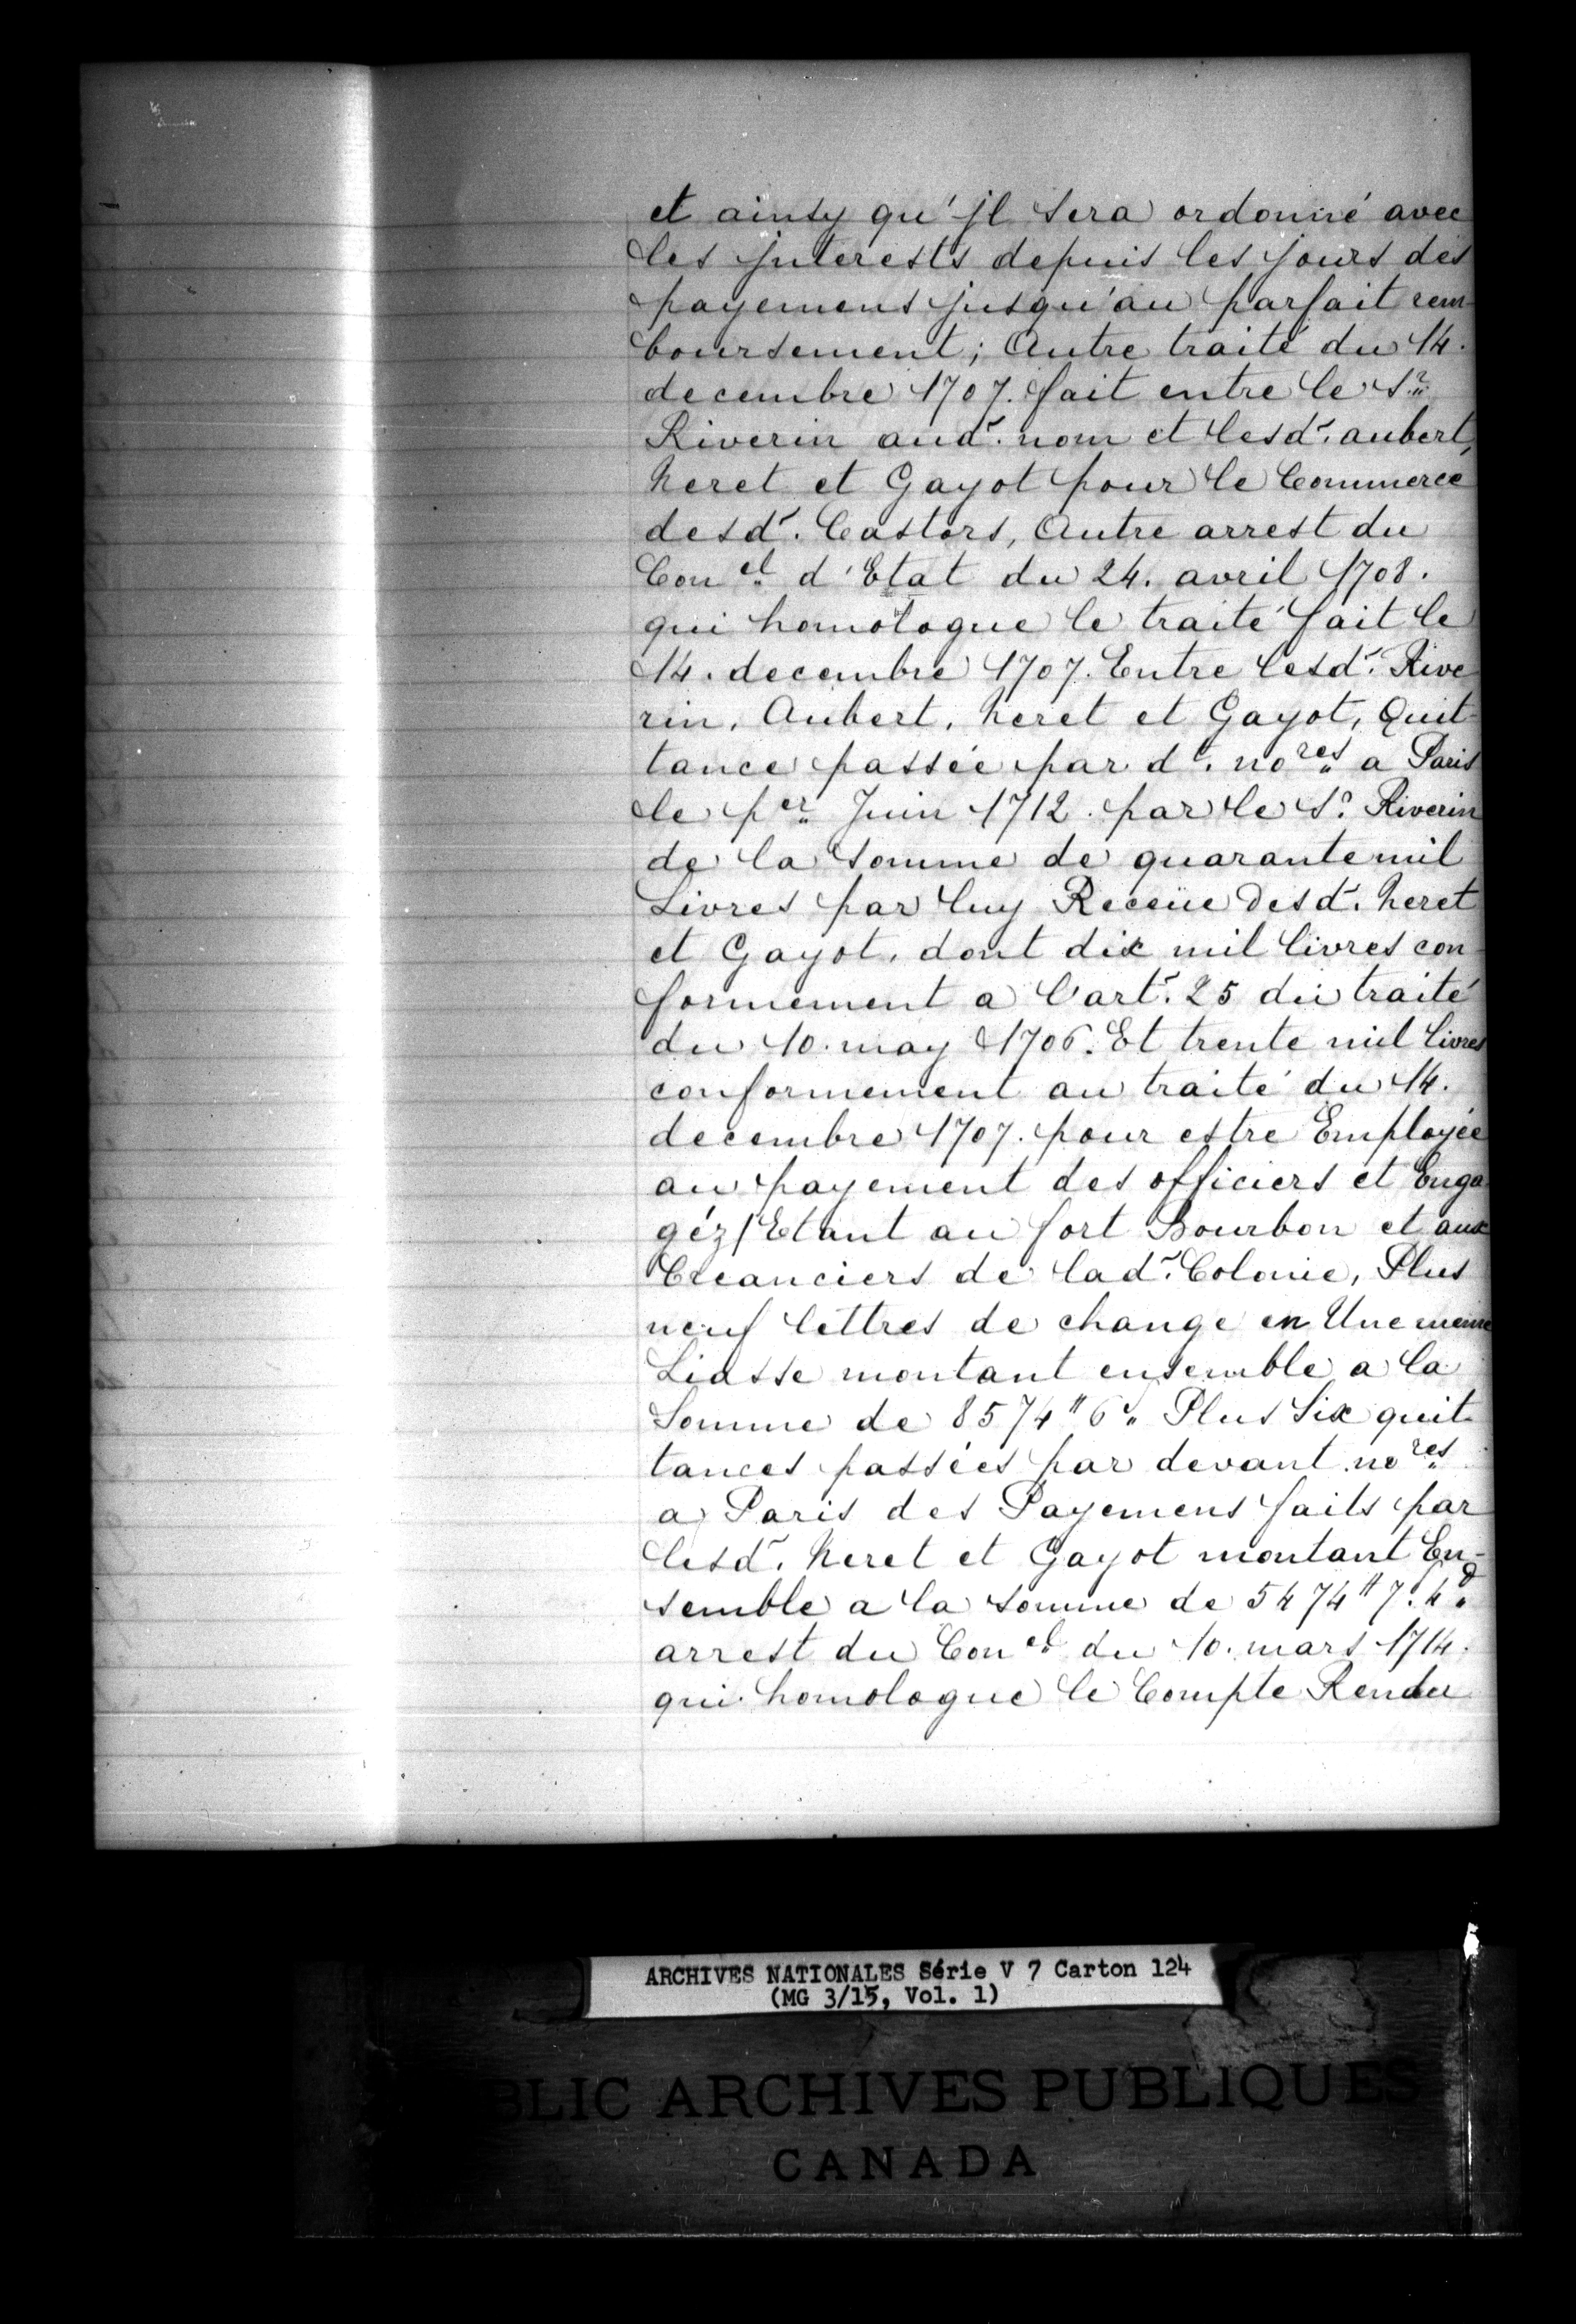 et ainsy qu'jl sera ordonné avec
les jnterests depuis les jours des
payemens jusqu'au parfait rem-
boursement; Autre traité du 14.
decembre 1707. fait entre le Sr.
Riverin aud. nom et lesd. aubert,
Neret et Gayot pour le Commerce
desd. Castors, Autre arrest du
Conel. d'Etat du 24. avril 1708.
qui homologue le traité fait le
14. decembre 1707. Entre lesd. Rive
rin, Aubert, Neret et Gayot, Quit-
tance passée par d. nores a Paris
le per. Juin 1712. par le Sr. Riverin
de la Somme de quarante mil
Livres par luy Receüe desd. Neret
et Gayot, dont dix mil livres con-
formement a l'art. 25 du traité
du 10. may 1706. Et trente mil livres
conformement au traité du 14.
decembre 1707. pour estre Employée
au payement des officiers et Enga
géz Etant au fort Bourbon et aux
Creanciers de lad. Colonie, Plus
neuf lettres de change en Une meme
Liasse montant ensemble a la
Somme de 8574# 6s. Plus Six quit-
tances passées par devant nores
a Paris des Payemens faits par
lesd. Neret et Gayot montant En-
semble a la somme de 5474# 7. 4d
arrest du Conel. du 10. mars 1714.
qui homologue le Compte Rendu
ARCHIVES NATIONALES Série V 7 Carton 124
(MG 3/15, Vol. 1)
BLIC ARCHIVES PUBLIQUES
CANADA